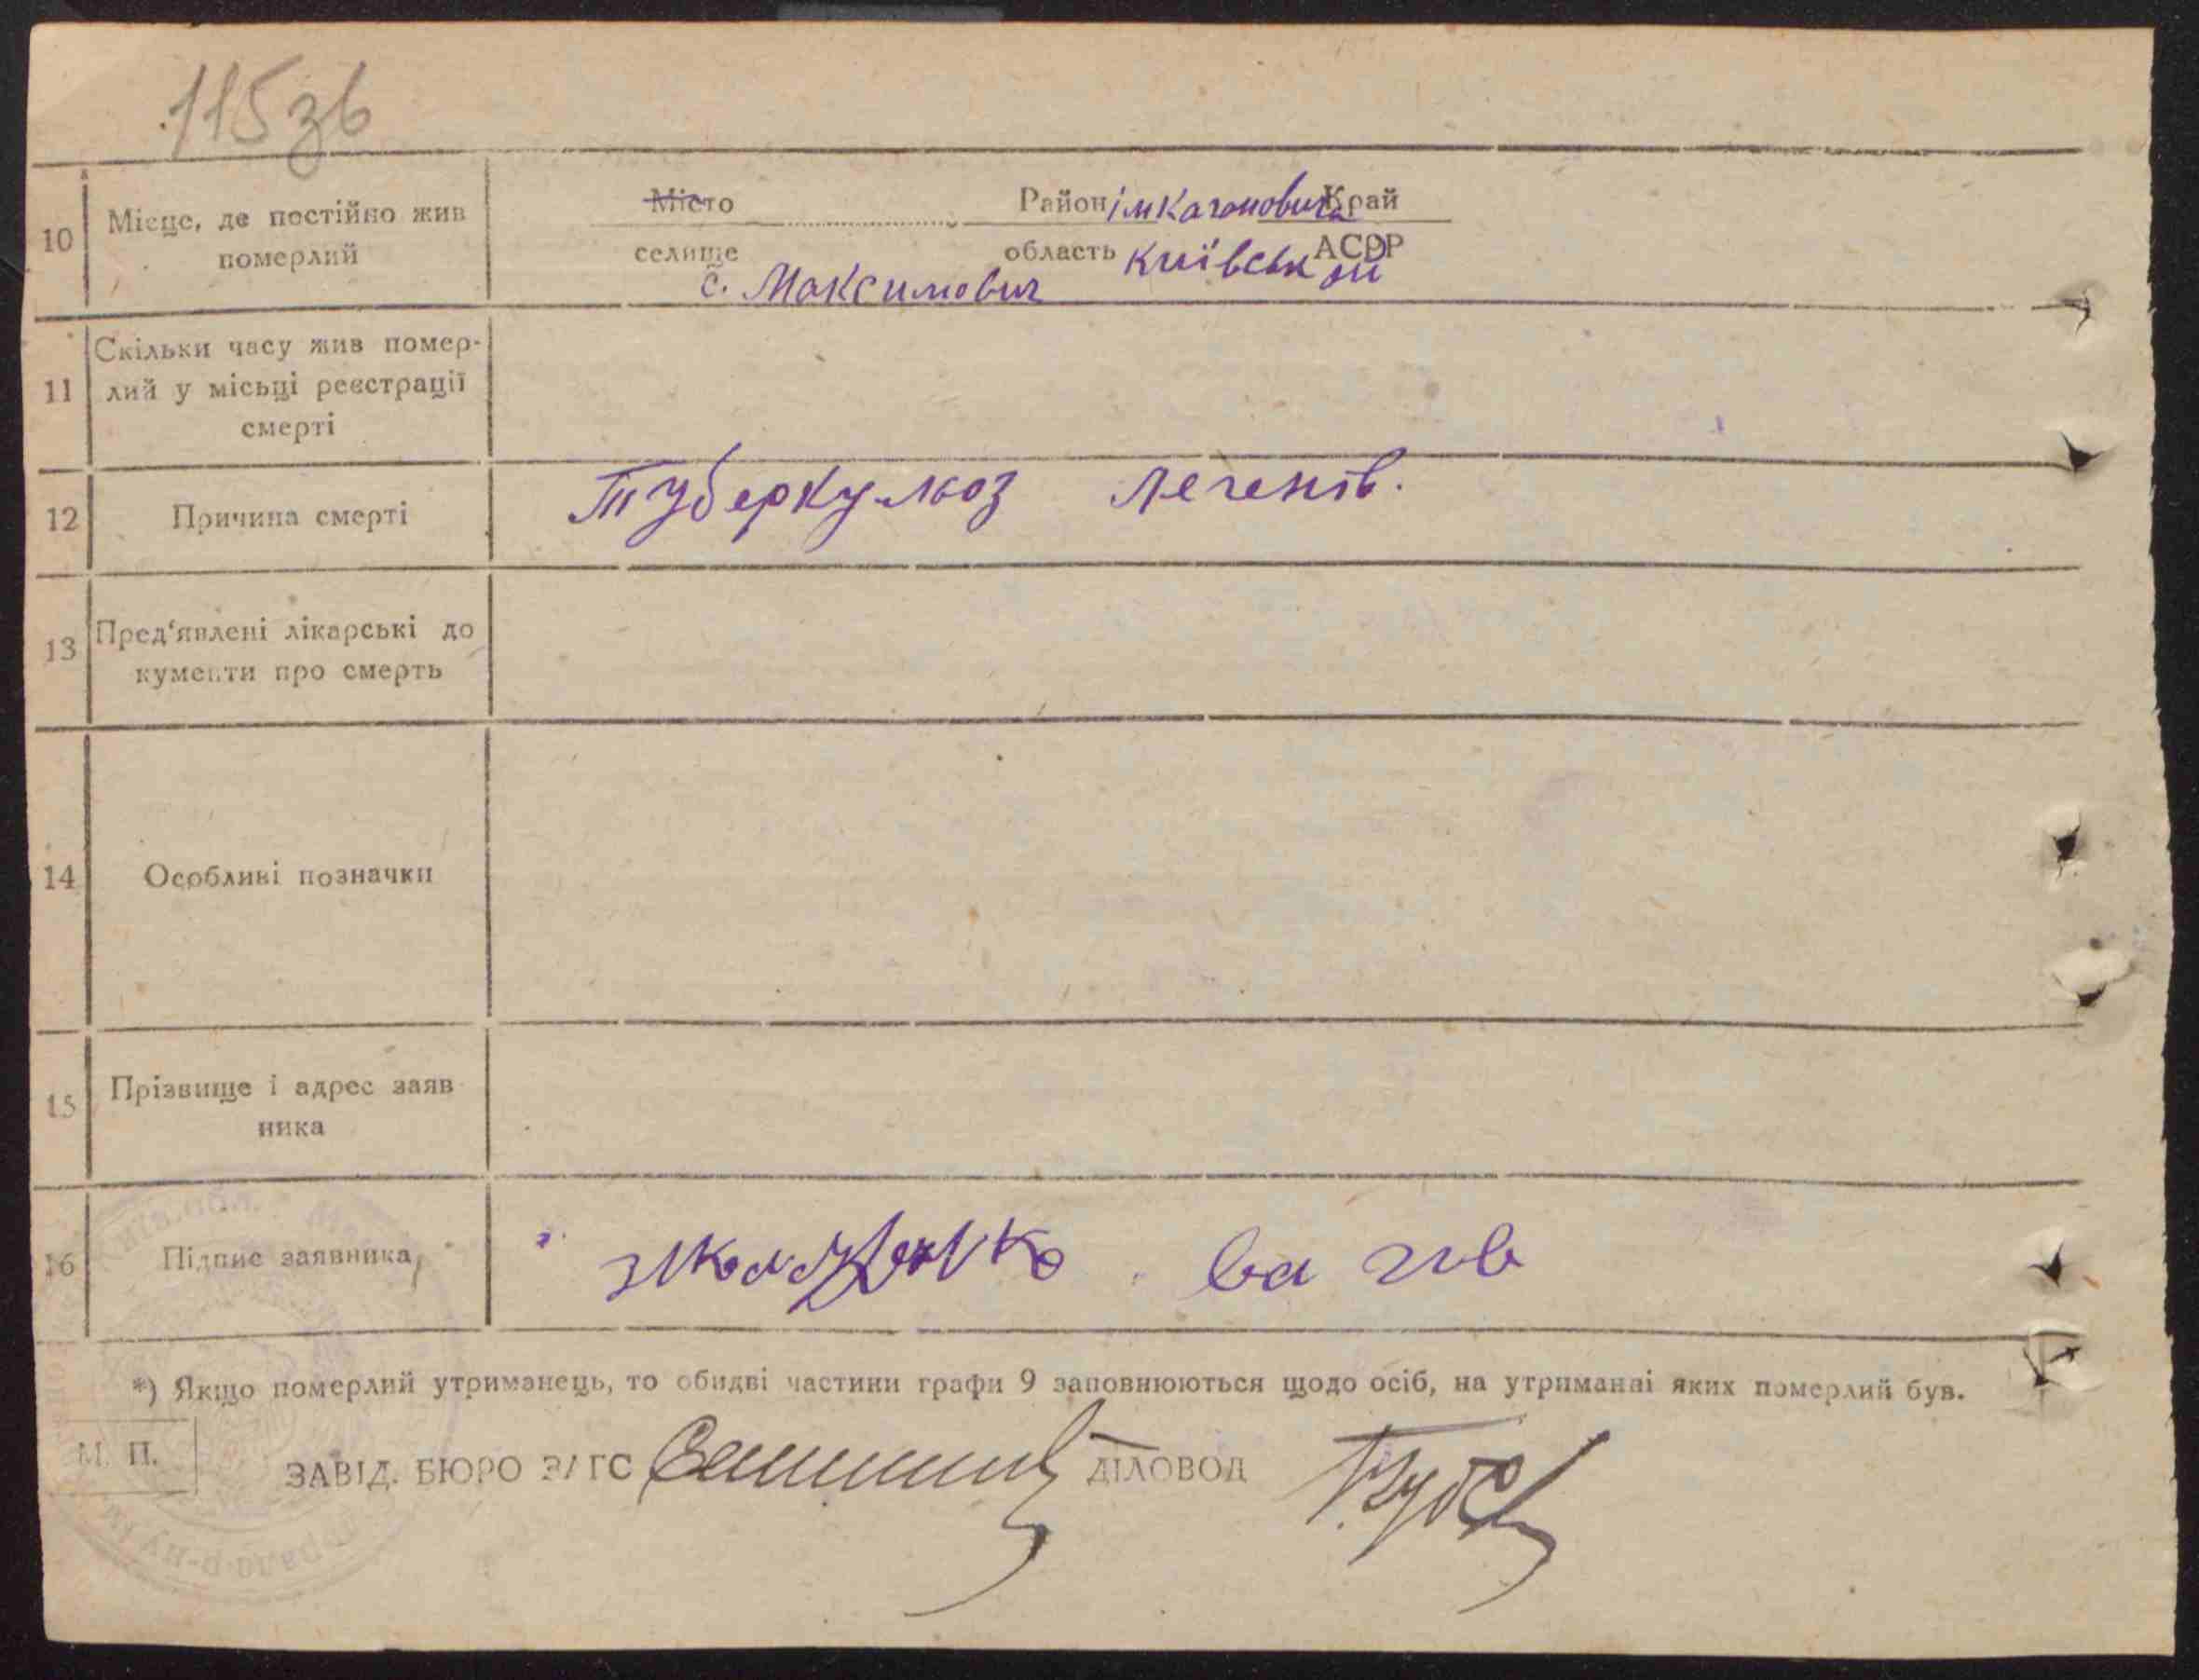 115зв
10 Місце, де постійно жив
померлий
Місто Район ім Кагановича Край
селище область Київської АСРР
с. Максимович
11 Скільки часу жив помер-
лий у місьці реєстрації
смерті
12 Причина смерті Туберкульоз легенів.
13 Пред'явлені лікарські до
кументи про смерть
14 Особливі позначки
15 Прізвище і адрес заяв
ника
16 Підпис заявника
*) Якщо померлий утриманець, то обидві частини графи 9 заповнюються щодо осіб, на утриманні яких померлий був.
М. П.
ЗАВІД. БЮРО ЗАГС ДІЛОВОД